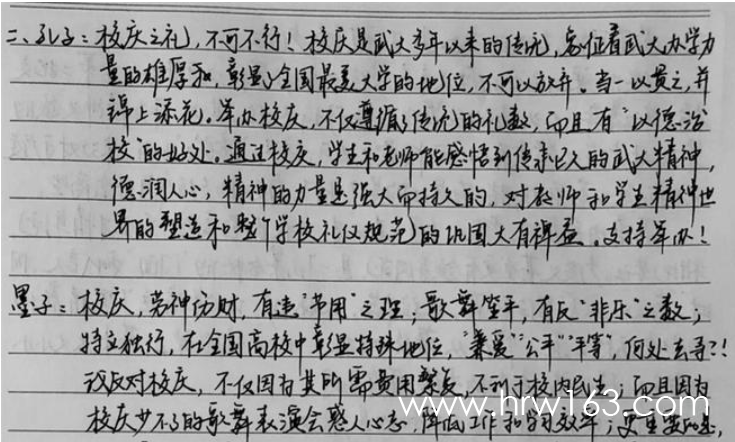 二、孔子：校庆之礼，不可不行！校庆是武大多年以来的传统，象征着武大办学力
量的雄厚和，彰显了全国最美大学的地位，不可以放弃。当一以贯之，并
锦上添花。举办校庆，不仅遵循了传统的礼数，而且有“以德治
校”的好处。通过校庆，学生和老师能感悟到传承已久的武大精神，
德润人心，精神的力量是强大而持久的，对教师和学生精神世
界的塑造和整个学校礼仪规范的巩固大有裨益。支持举办！
墨子：校庆，劳神伤财，有违“节用”之理；歌舞笙平，有反“非乐”之教；
特立独行，在全国高校中彰显特殊地位，“兼爱”“公平”“平等”何处去寻？！
我反对校庆，不仅因为其所需费用繁复，不利于校内民生；而且因为
校庆少不了的歌舞表演会惑人心志，降低工作和学习效率；更重要的是，
www.hrw163.com